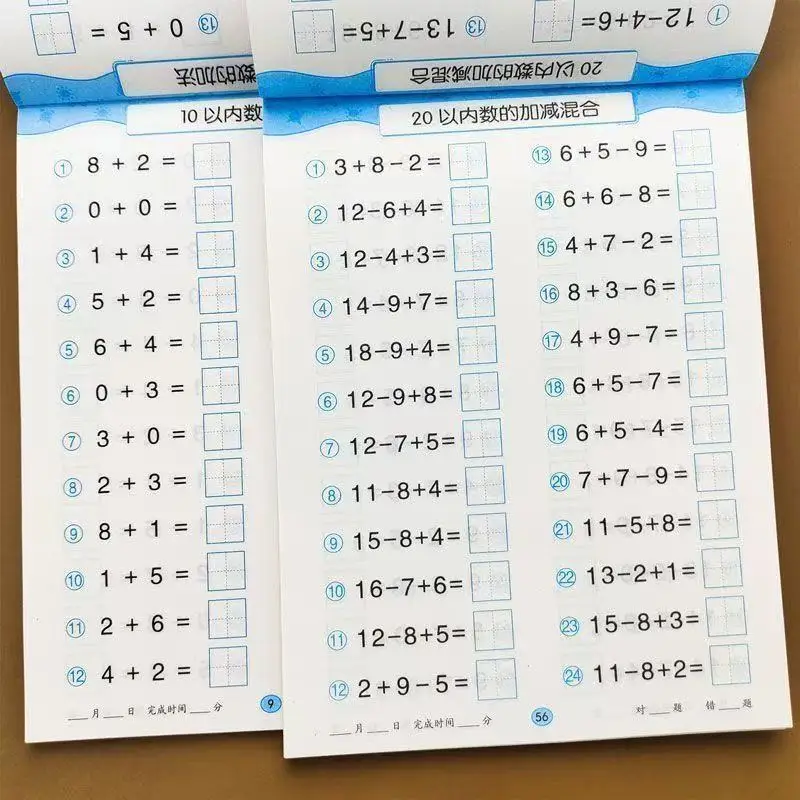 ⑬ 0 + 5 =
⑬ 13-7+5=
① 12-4+6=
数的加法
20以内数的加减混合
10以内数
① 8 + 2 =
② 0 + 0 =
③ 1 + 4 =
④ 5 + 2 =
⑤ 6 + 4 =
⑥ 0 + 3 =
⑦ 3 + 0 =
⑧ 2 + 3 =
⑨ 8 + 1 =
⑩ 1 + 5 =
⑪ 2 + 6 =
⑫ 4 + 2 =
___月___日 完成时间___分
9
20以内数的加减混合
① 3+8-2=
② 12-6+4=
③ 12-4+3=
④ 14-9+7=
⑤ 18-9+4=
⑥ 12-9+8=
⑦ 12-7+5=
⑧ 11-8+4=
⑨ 15-8+4=
⑩ 16-7+6=
⑪ 12-8+5=
⑫ 2+9-5=
⑬ 6+5-9=
⑭ 6+6-8=
⑮ 4+7-2=
⑯ 8+3-6=
⑰ 4+9-7=
⑱ 6+5-7=
⑲ 6+5-4=
⑳ 7+7-9=
㉑ 11-5+8=
㉒ 13-2+1=
㉓ 15-8+3=
㉔ 11-8+2=
___月___日 完成时间___分
56
对___题 错___题